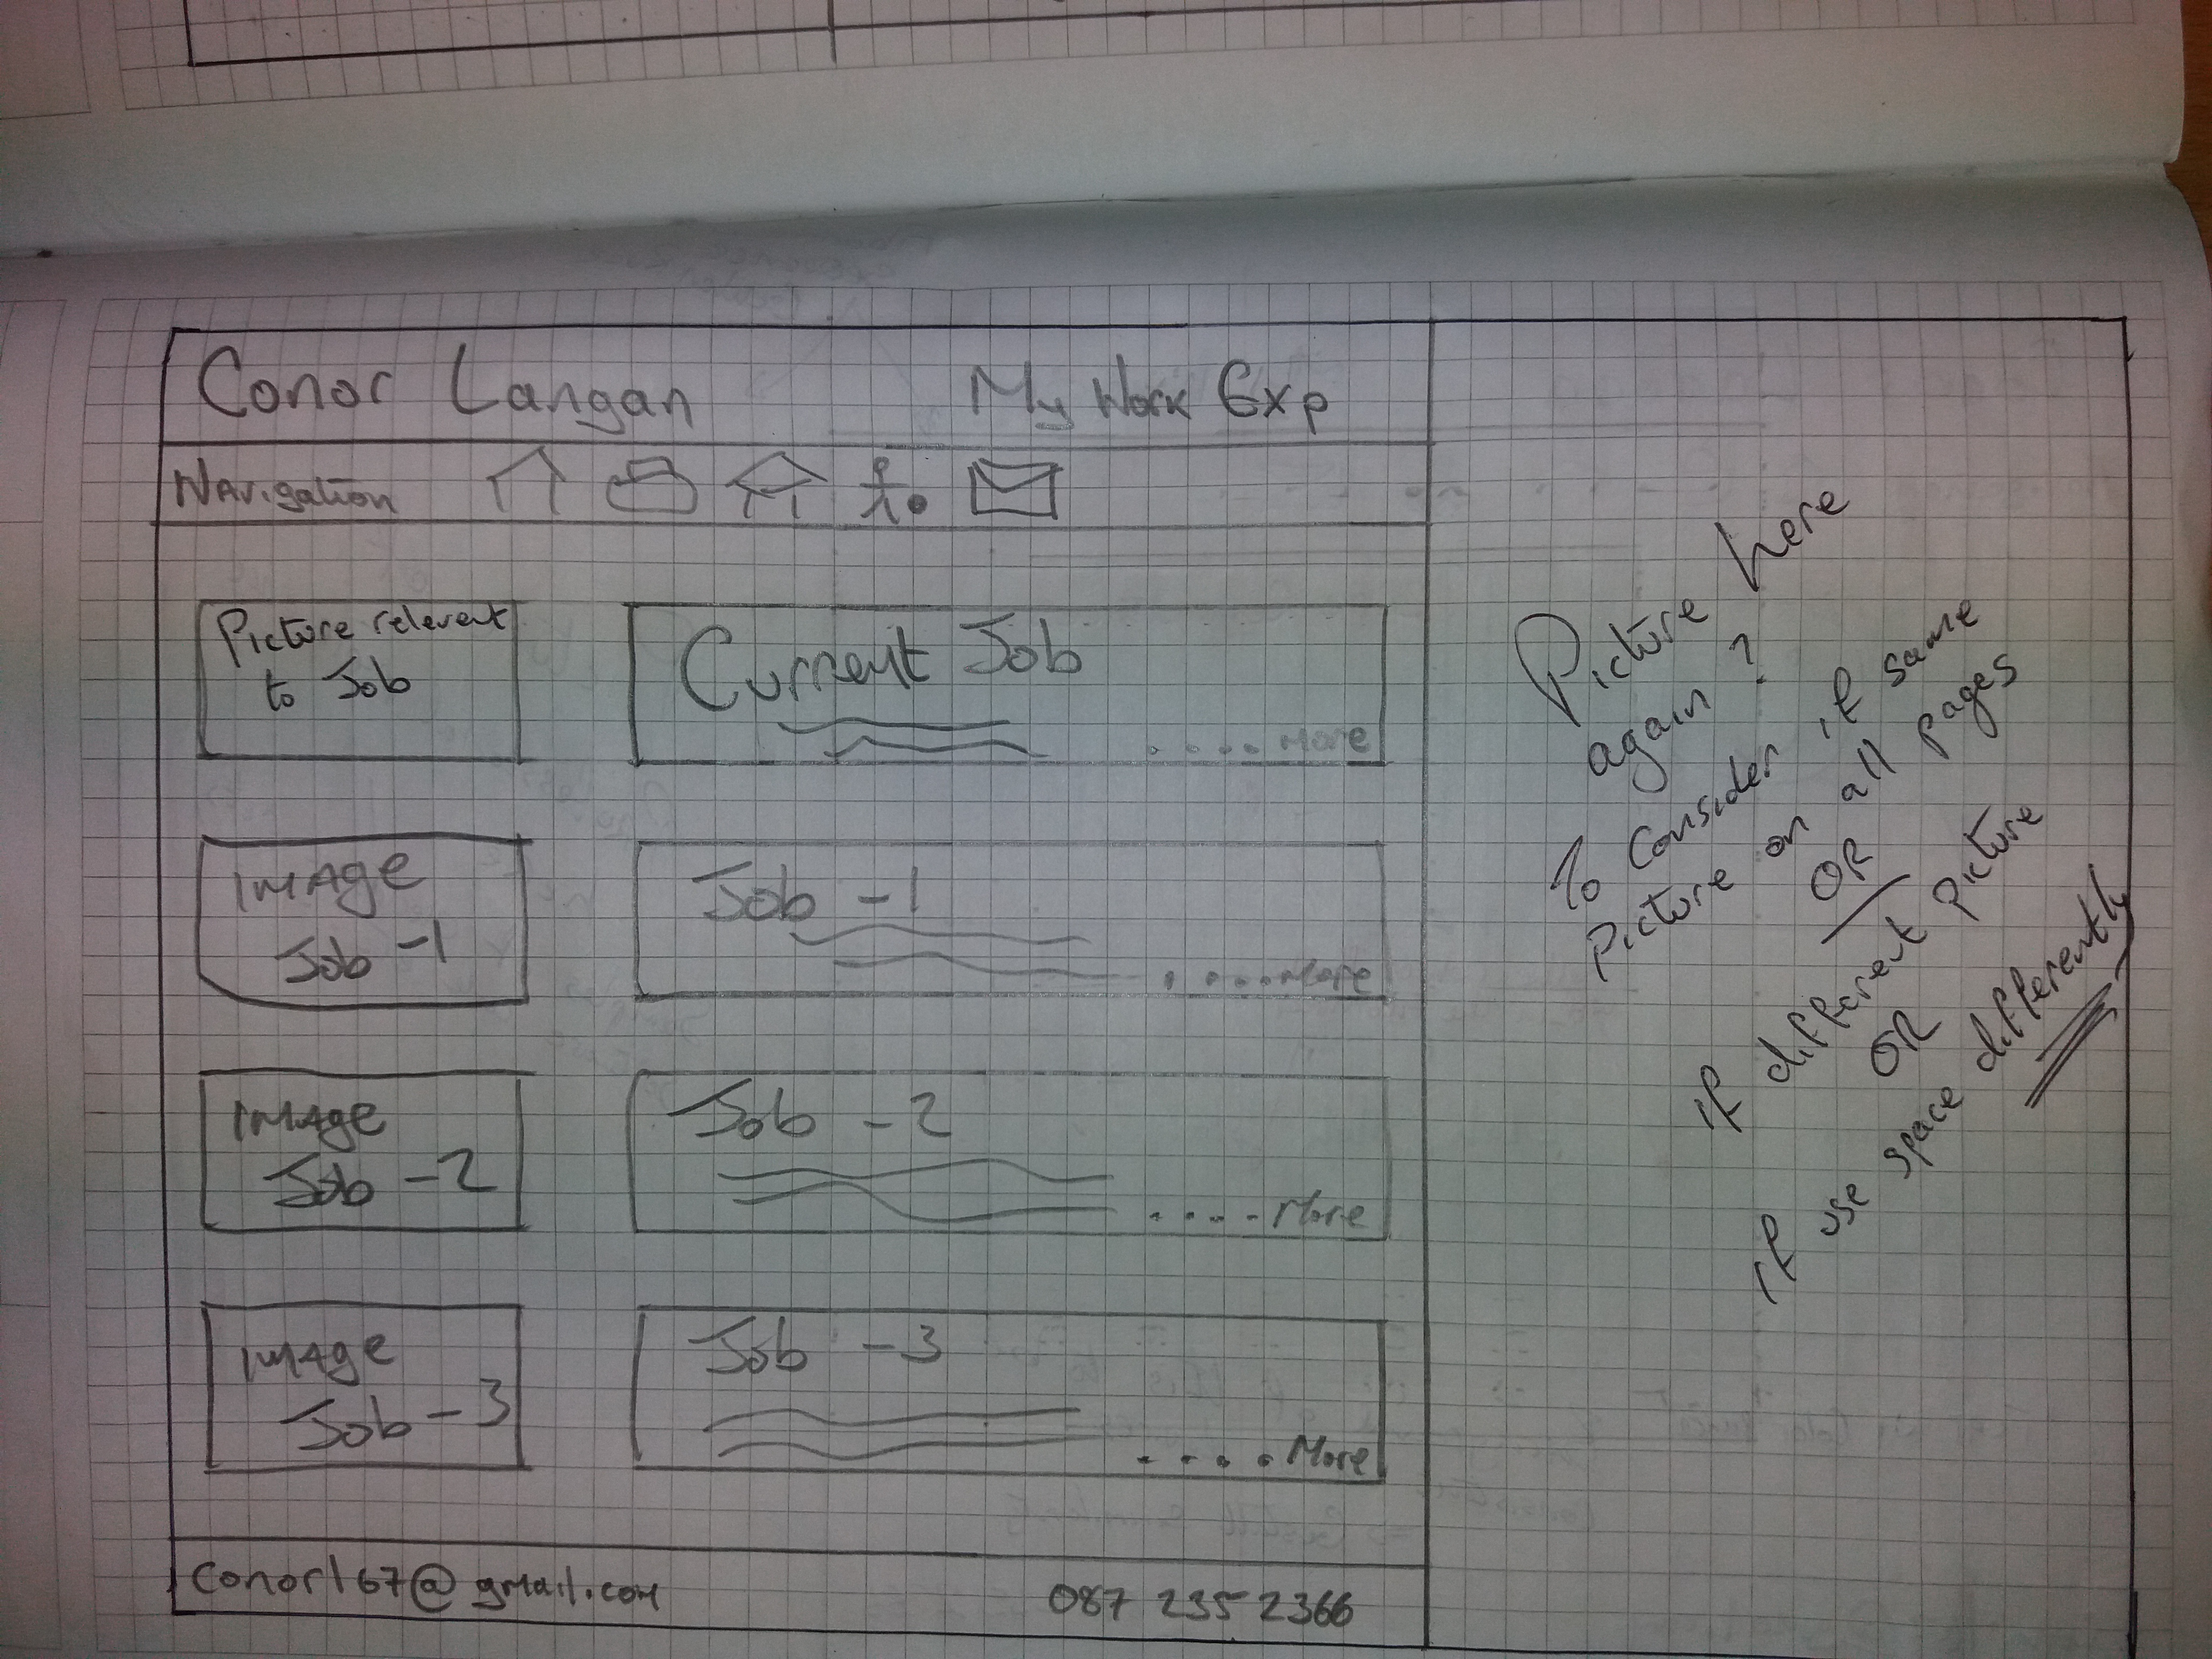 Conor Langan My Work Exp
Navigation
Picture relevent
to Job
Current Job
....More
Image
Job -1
Job -1
....More
Image
Job -2
Job -2
....More
Image
Job -3
Job -3
....More
Conor167@gmail.com 087 255 2366
Picture here
again?
to consider if same
picture on all pages
OR
if different picture
OR
if use space differently